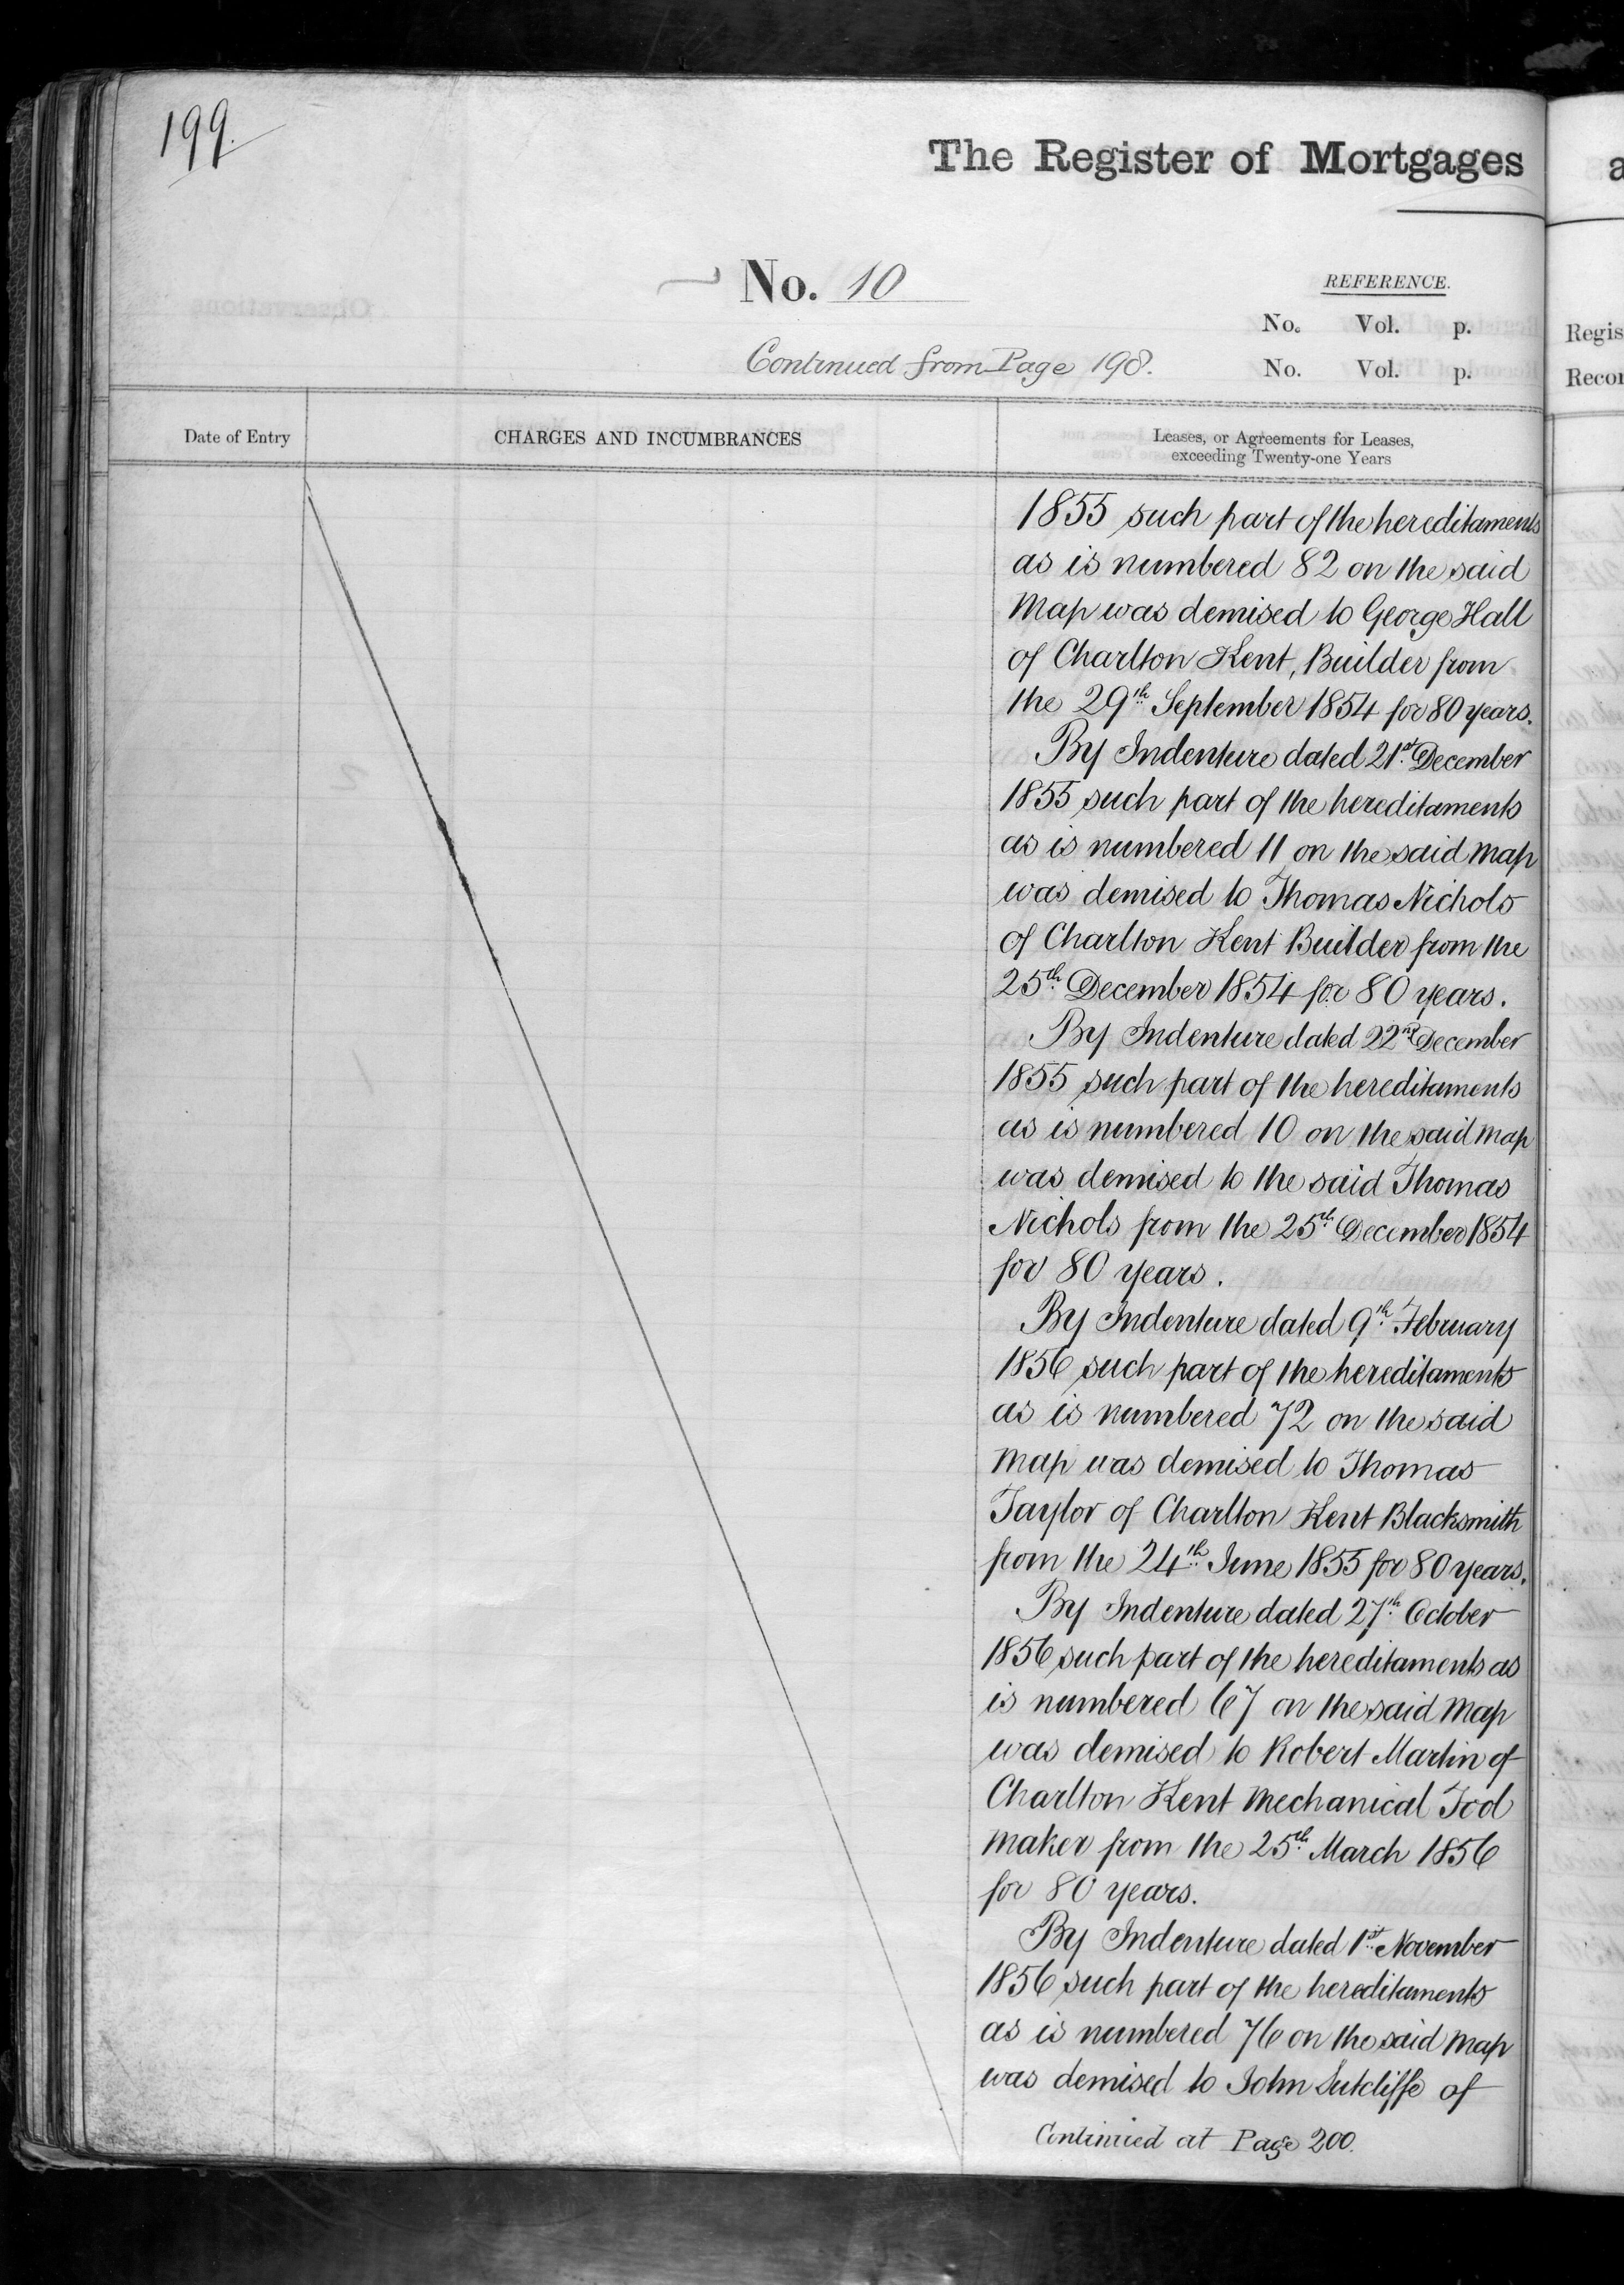 199.
The Register of Mortgages
No. 10
REFERENCE.
No. Vol. p.
Continued from Page 198.
No. Vol. p.
Regis
Recor
Date of Entry
CHARGES AND INCUMBRANCES
Leases, or Agreements for Leases,
exceeding Twenty-one Years
1855 such part of the hereditaments
as is numbered 82 on the said
Map was demised to George Hall
of Charlton Kent, Builder from
the 29th September 1854 for 80 years.
By Indenture dated 21st December
1855 such part of the hereditaments
as is numbered 11 on the said Map
was demised to Thomas Nichols
of Charlton Kent Builder from the
25th December 1854 for 80 years.
By Indenture dated 22nd December
1855 such part of the hereditaments
as is numbered 10 on the said Map
was demised to the said Thomas
Nichols from the 25th December 1854
for 80 years.
By Indenture dated 9th February
1856 such part of the hereditaments
as is numbered 72 on the said
Map was demised to Thomas
Taylor of Charlton Kent Blacksmith
from the 24th June 1855 for 80 years.
By Indenture dated 27th October
1856 such part of the hereditaments as
is numbered 67 on the said Map
was demised to Robert Martin of
Charlton Kent Mechanical Tool
maker from the 25th March 1856
for 80 years.
By Indenture dated 1st November
1856 such part of the hereditaments
as is numbered 76 on the said Map
was demised to John Sutcliffe of
Continued at Page 200.